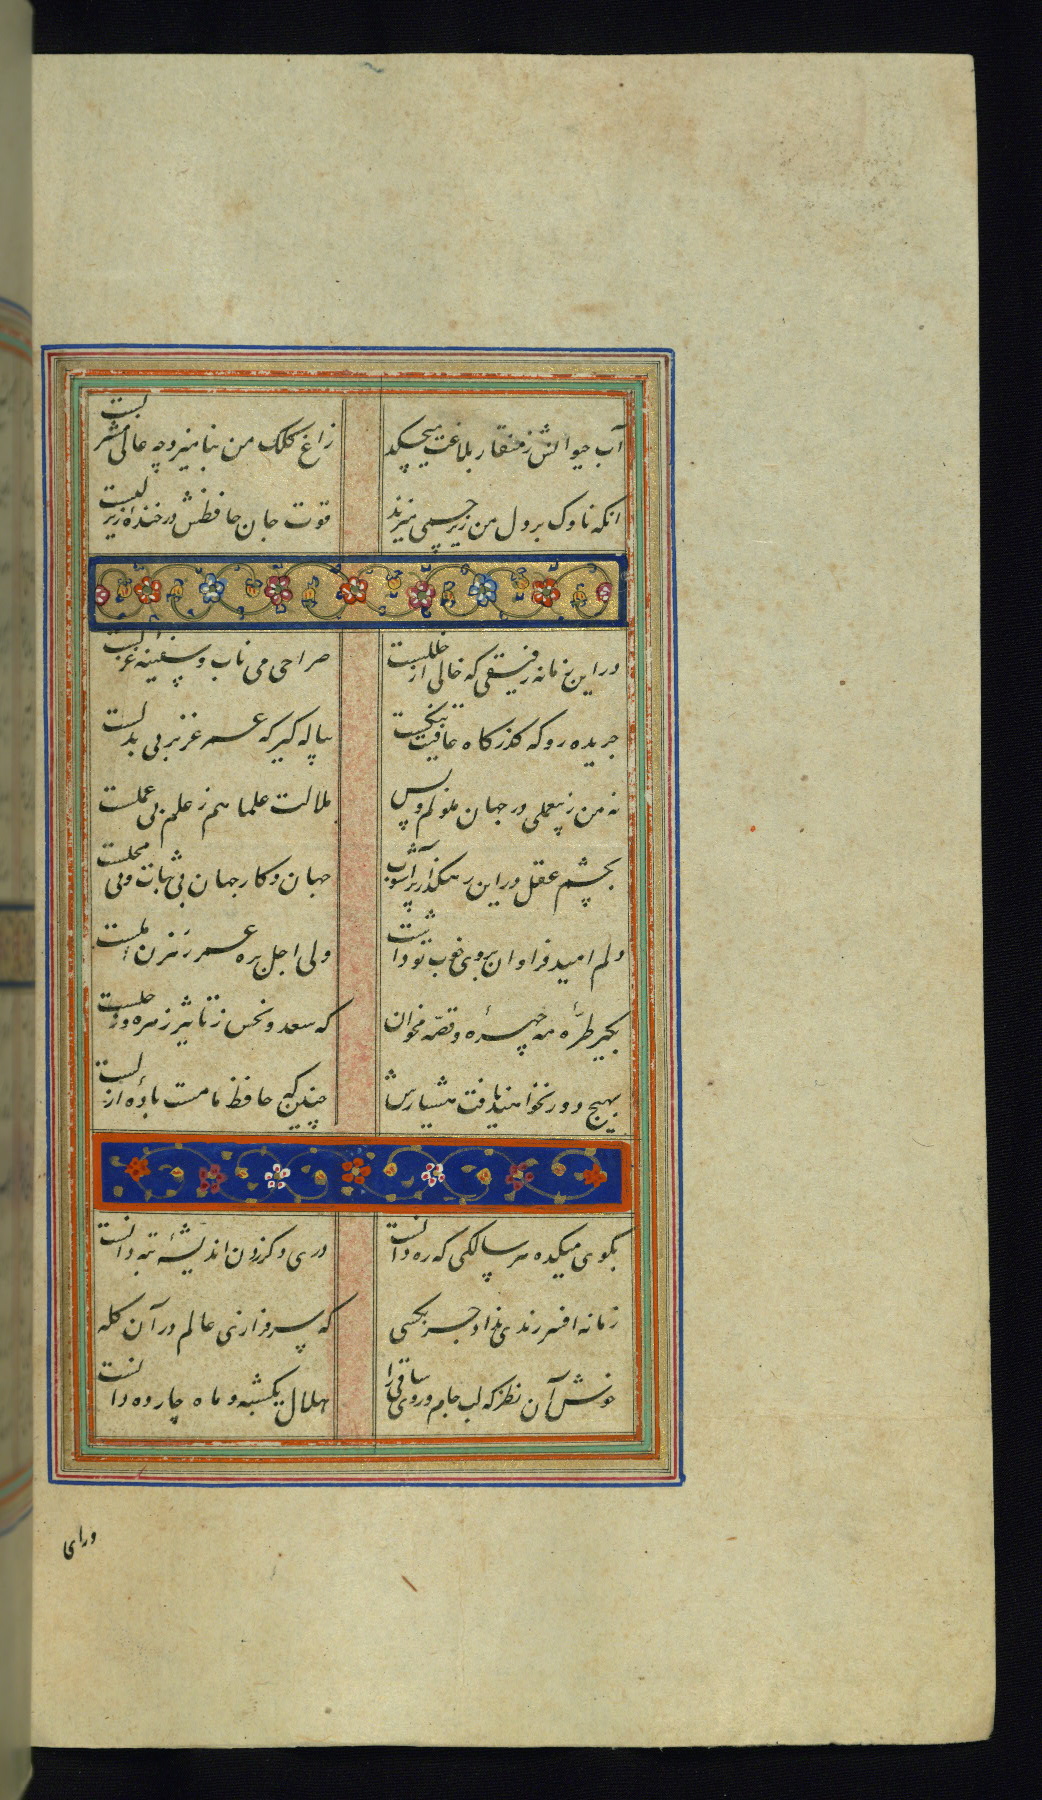 آب حیوانش ز منقار بلاغت میچکد زاغ کلک من بنامیزد چه عالی مشربست
انکه ناوک بر دل من زیر چشمی میزند قوت جان حافظش در خنده زیر لبست
درین زمانه رفیقی که خالی از خللست صراحی می ناب و سفینه غزلست
جریده رو که گذرگاه عافیت تنگست پیاله گیر که عمر عزیز بی بدلست
نه من ز بیعملی در جهان ملولم و بس ملالت علما هم ز علم بی عملست
بچشم عقل در این رهگذار پرآشوب جهان و کار جهان بی ثبات و بی محلست
دلم امید فراوان بروی خوب تو داشت ولی اجل بره عمر رهزن املست
بگیر طرّه مه چهرۀ و قصّه مخوان که سعد و نحس ز تاثیر زهره و زحلست
بهیچ دور نخواهند یافت هشیارش چنین که حافظ ما مست بادۀ ازلست
بکوی میکده هر سالکی که ره دانست دری دگر زدن اندیشۀ تبه دانست
زمانه افسر رندی نداد جز بکسی که سرفرازی عالم در آن کله
خوش آن نظر که لب جام و روی ساقی را هلال یکشبه و ماه چارده دانست
ورای